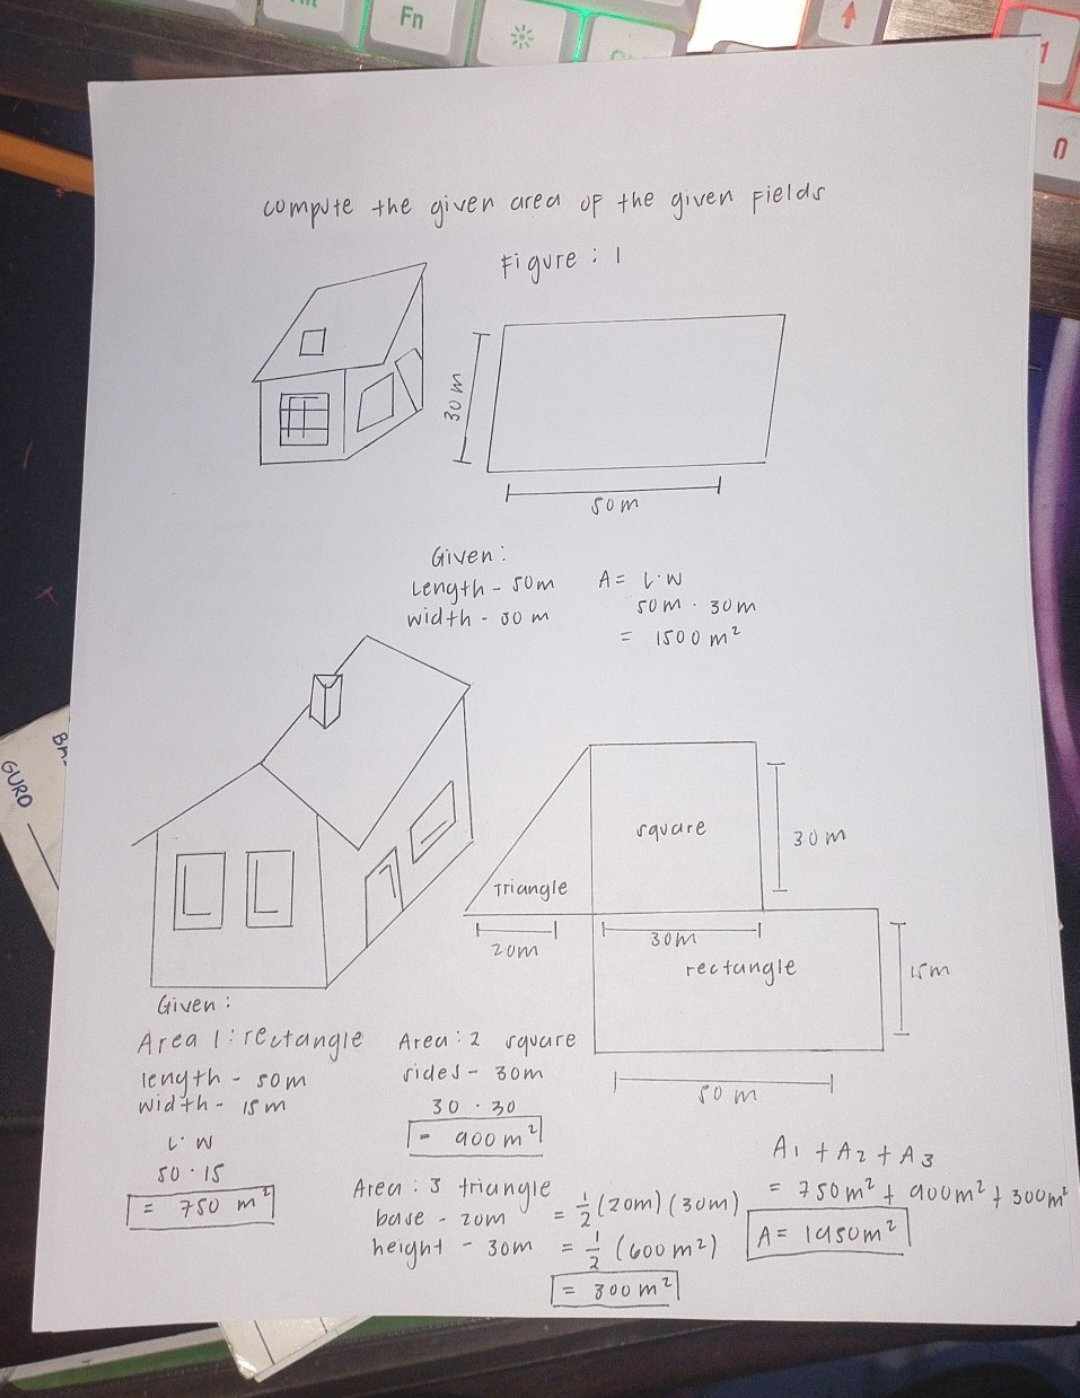 Fn
1
0
compute the given area of the given fields
Figure : 1
30 m
50m
Given :
Length - 50m
width - 30 m
A = L·W
50m · 30m
= 1500 m²
GURO
square
30m
Triangle
20m
30m
rectangle
15m
50 m
Given :
Area 1: rectangle
length - 50m
width - 15m
L·W
50·15
= 750 m²
Area : 2 square
sides - 30m
30 · 30
= 900 m²
Area : 3 triangle
base - 20m
height - 30m
= 1/2 (20m) (30m)
= 1/2 (600 m²)
= 300 m²
A1 + A2 + A3
= 750m² + 900m² + 300m²
A = 1950m²